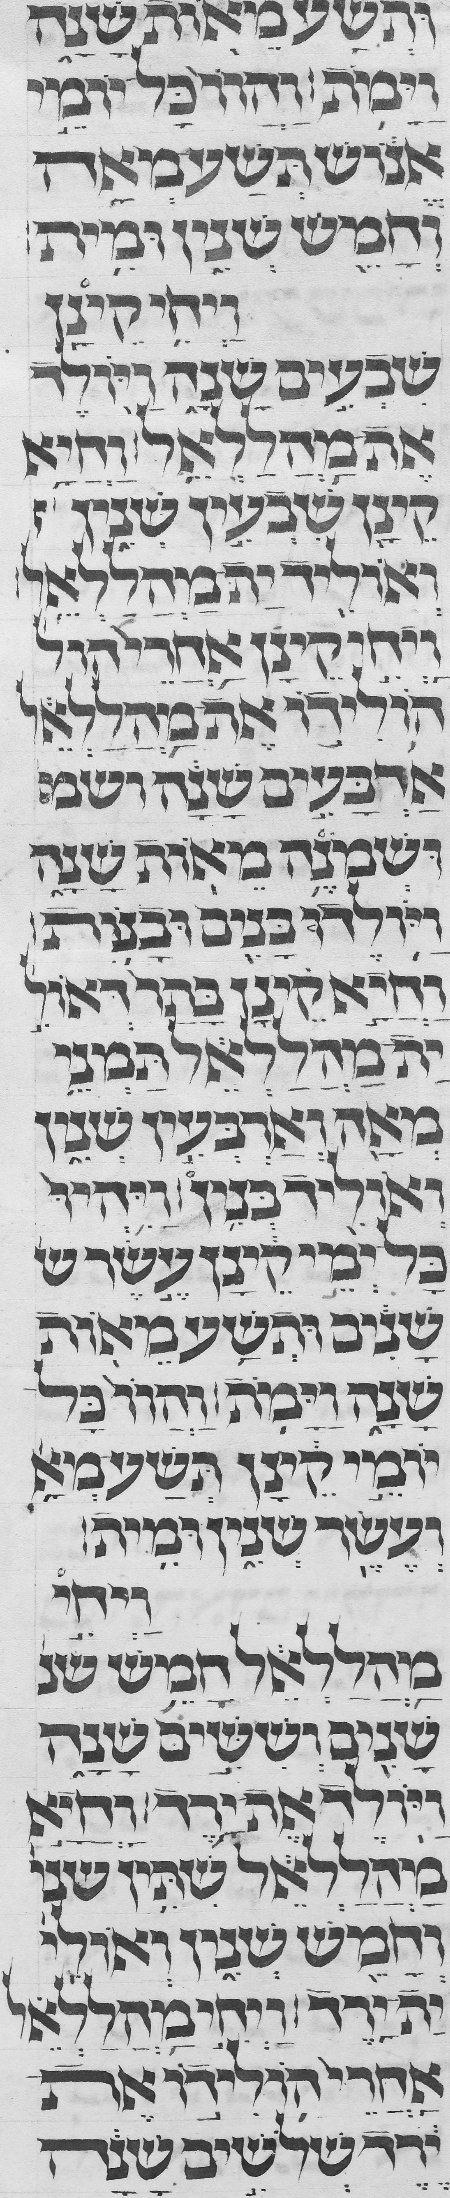 ותשע מאות שנה
וימת׃ והוו כל יומי
אנוש תשע מאה
וחמש שנין ומית׃
ויחי קינן
שבעים שנה ויולד
את מהללאל׃ וחיא
קינן שבעין שנין
ואוליד ית מהללאל׃
ויחי קינן אחרי הול
הולידו את מהללאל
ארבעים שנה ושמ
ושמנה מאות שנה
ויולד בנים ובנות׃
וחיא קינן בתר דאול
ית מהללאל תמני
מאה וארבעין שנין
ואוליד בנין׃ ויהיו
כל ימי קינן עשר ש
שנים ותשע מאות
שנה וימת׃ והוו כל
יומי קינן תשע מא
ועשר שנין ומית׃
ויחי
מהללאל חמש שנ
שנים וששים שנה
ויולד את ירד׃ וחיא
מהללאל שתין שני
וחמש שנין ואולי
ית ירד׃ ויחי מהללאל
אחרי הולידו את
ירד שלשים שנה